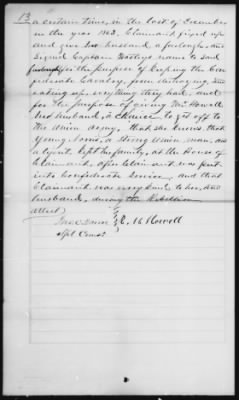 13
a certain time, in the last of December
in the year 1863, Claimant fixed up
and give her husband, a furlough, and
signed Captain name to said
furlough for the purpose of keeping the Con-
federate Cavalry, from destroying, and
eating up, everything they had, and
for the purpose of giving Mr Howell
her husband, a chance to get off to
the Union Army, that she knows that
Young a strong Union man, and
kept his family, at the house of
Claimant, after Claimant was put
into Confederate service, and that
Claimant was very kind to her, and
husband, during the Rebellion
attest
E, M Howell
Spl Comr